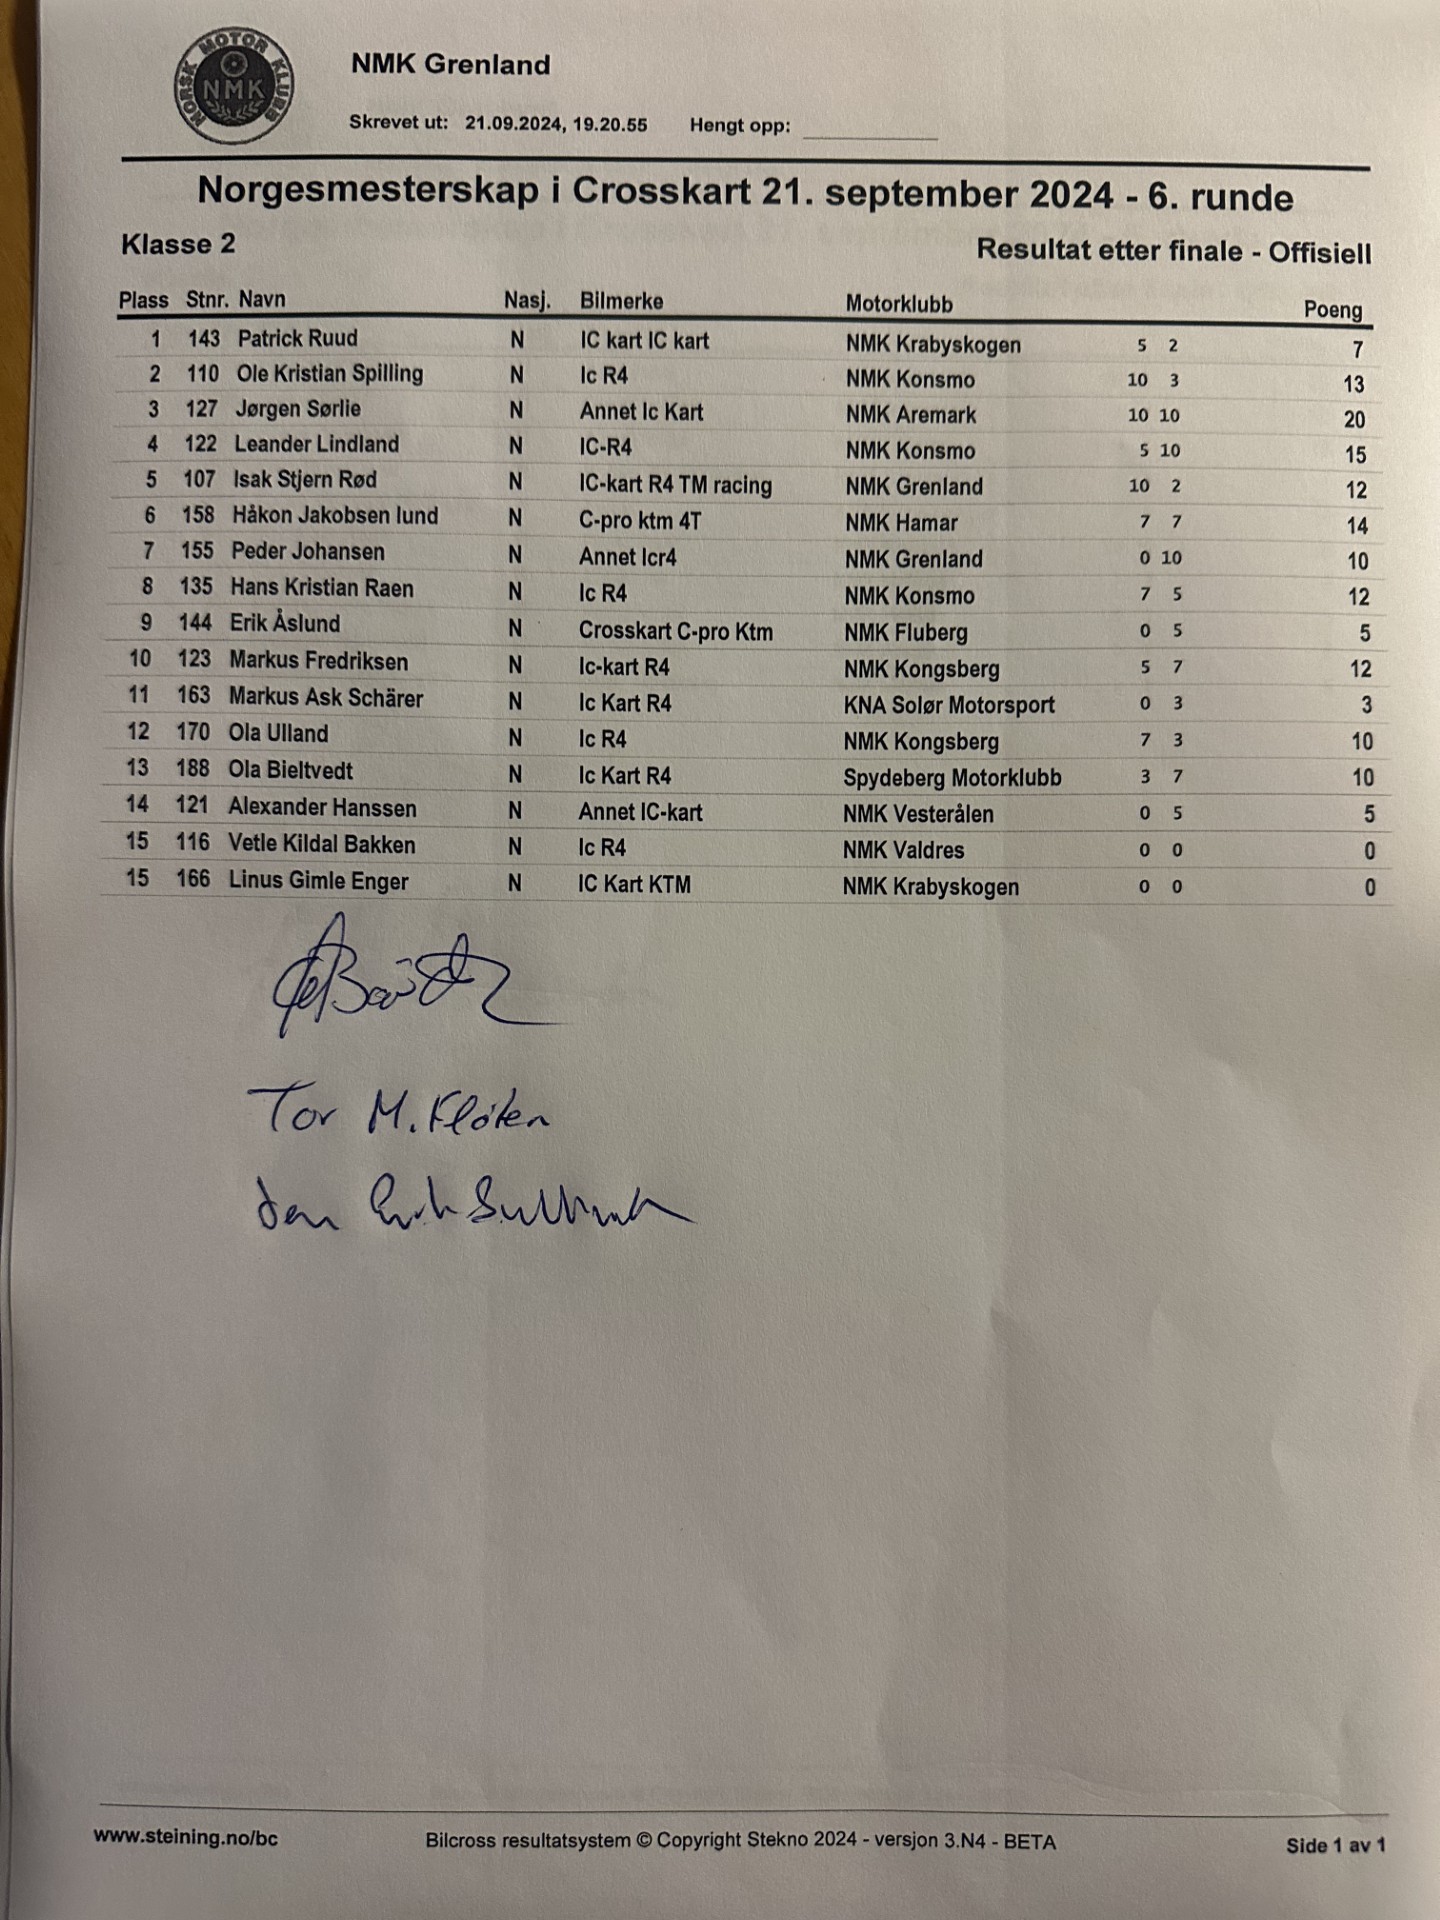 NORSK MOTOR KLUBB
NMK
NMK Grenland
Skrevet ut: 21.09.2024, 19.20.55 Hengt opp:
Norgesmesterskap i Crosskart 21. september 2024 - 6. runde
Klasse 2 Resultat etter finale - Offisiell
Plass Stnr. Navn Nasj. Bilmerke Motorklubb Poeng
1 143 Patrick Ruud N IC kart IC kart NMK Krabyskogen 5 2 7
2 110 Ole Kristian Spilling N Ic R4 NMK Konsmo 10 3 13
3 127 Jørgen Sørlie N Annet Ic Kart NMK Aremark 10 10 20
4 122 Leander Lindland N IC-R4 NMK Konsmo 5 10 15
5 107 Isak Stjern Rød N IC-kart R4 TM racing NMK Grenland 10 2 12
6 158 Håkon Jakobsen lund N C-pro ktm 4T NMK Hamar 7 7 14
7 155 Peder Johansen N Annet Icr4 NMK Grenland 0 10 10
8 135 Hans Kristian Raen N Ic R4 NMK Konsmo 7 5 12
9 144 Erik Åslund N Crosskart C-pro Ktm NMK Fluberg 0 5 5
10 123 Markus Fredriksen N Ic-kart R4 NMK Kongsberg 5 7 12
11 163 Markus Ask Schärer N Ic Kart R4 KNA Solør Motorsport 0 3 3
12 170 Ola Ulland N Ic R4 NMK Kongsberg 7 3 10
13 188 Ola Bieltvedt N Ic Kart R4 Spydeberg Motorklubb 3 7 10
14 121 Alexander Hanssen N Annet IC-kart NMK Vesterålen 0 5 5
15 116 Vetle Kildal Bakken N Ic R4 NMK Valdres 0 0 0
15 166 Linus Gimle Enger N IC Kart KTM NMK Krabyskogen 0 0 0
Tor M. Fløten
www.steining.no/bc Bilcross resultatsystem © Copyright Stekno 2024 - versjon 3.N4 - BETA Side 1 av 1